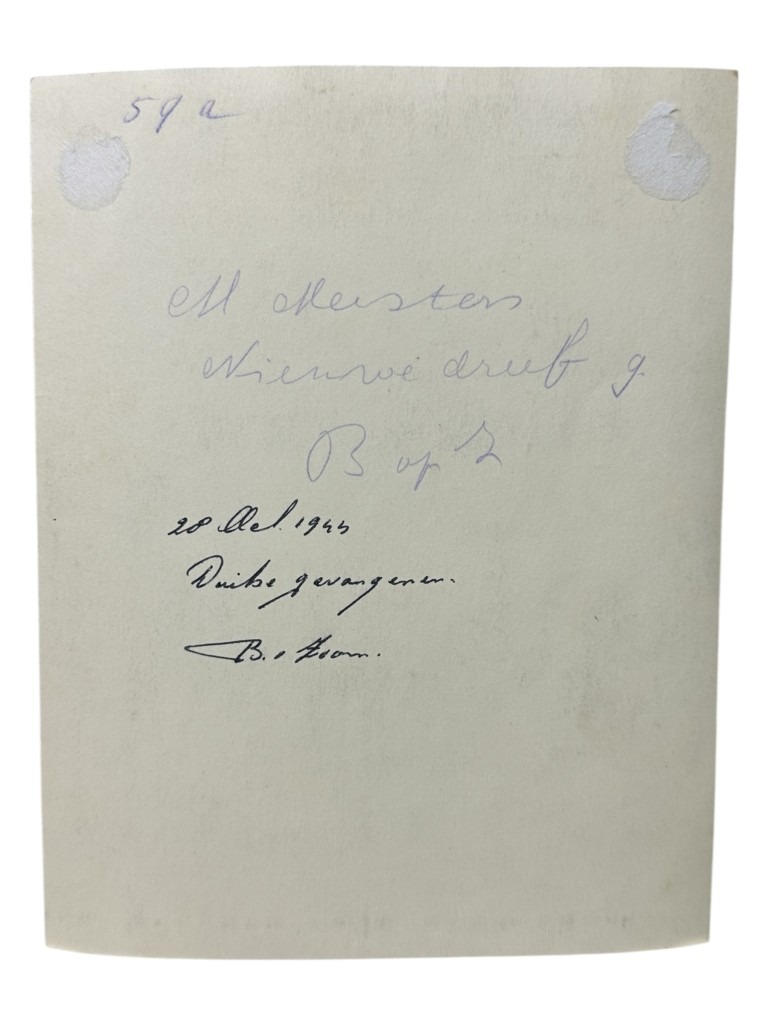 59a
M Meesters
Nieuwe dreef 9
B op Z
28 Oct. 1944
Duitse gevangenen.
B. o Zoom.